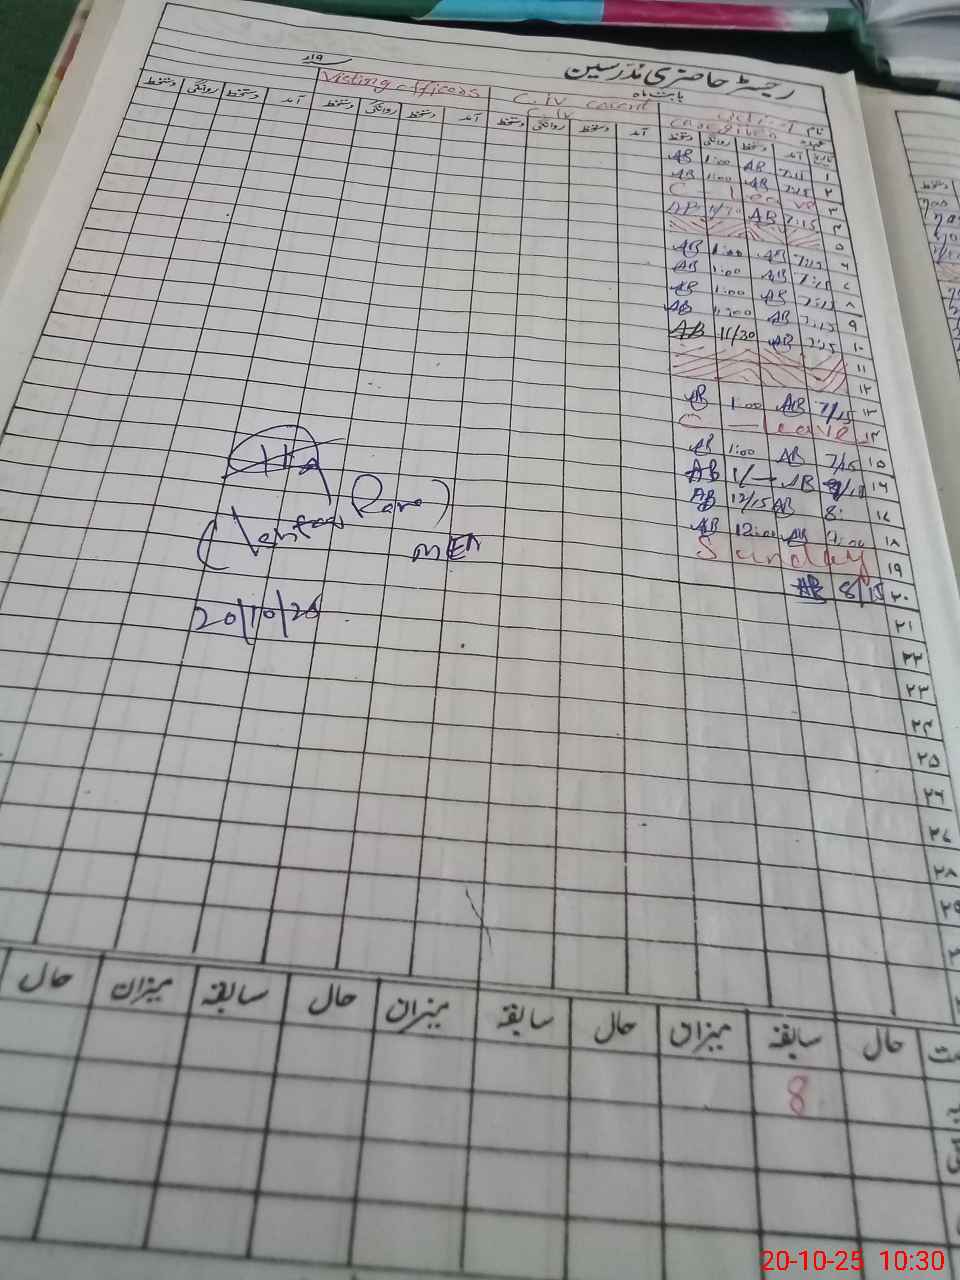 رجسٹر حاضری مدرسین
بابت ماہ
Visting officers
نام
عہدہ
تاریخ آمد دستخط روانگی دستخط آمد دستخط روانگی دستخط آمد دستخط روانگی دستخط آمد دستخط روانگی دستخط
۱ 7:15 AB 1:00 AB
۲ 7:15 AB 1:00 AB
۳ C - Leave
۴ 7:15 AB AB
۵
۶ 7:15 AB 1:00 AB
۷ 7:15 AB 1:00 AB
۸ 7:15 AB 1:00 AB
۹ 7:15 AB AB
۱۰ 7:15 AB 11/30 AB
۱۱
۱۲
۱۳ 7/15 AB 1:00 AB
۱۴ C - Leave
۱۵ 7/15 AB 1:00 AB
۱۶ AB 1/— AB
۱۷ 8: AB 12/15 AB
۱۸ AB 12:00 AB
۱۹ Sunday
۲۰ 8/15 AB
۲۱
۲۲
۲۳
۲۴
۲۵
۲۶
۲۷
۲۸
۲۹
MEA
20/10/25
حال سابقہ میزان حال سابقہ میزان حال سابقہ میزان حال
8
20-10-25 10:30